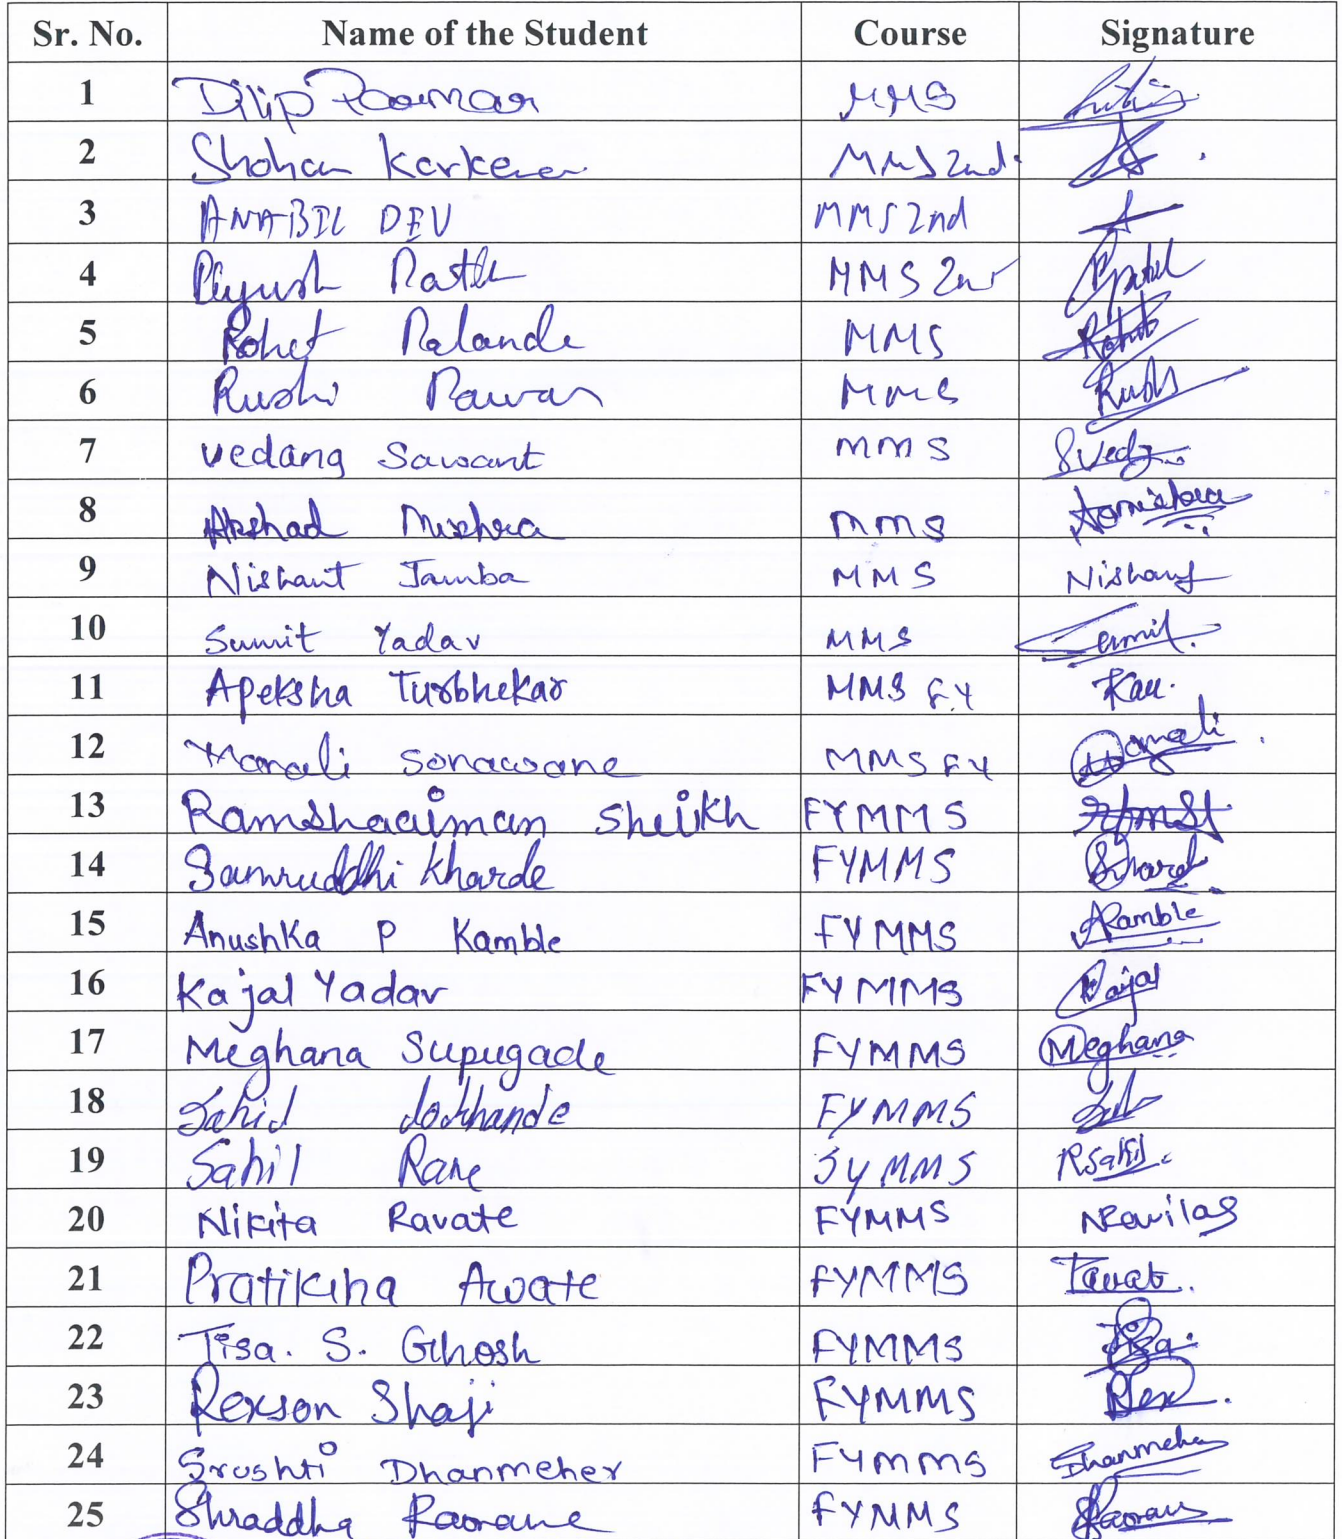 Sr. No. Name of the Student Course Signature
1 Dilip Parmar MMS
2 Shohan Karkera MMS 2nd.
3 ANABIL DEV MMS 2nd
4 Piyush MMS 2nd
5 Rohit Palande MMS Rohit
6 Rushi Pawar MMS Rushi
7 Vedang Sawant MMS SVed
8 Akshad Mishra MMS
9 Nishant Jamba MMS Nishant
10 Sumit Yadav MMS Sumit.
11 Apeksha Turbhekar MMS F.Y
12 Manali Sonawane MMS FY Manali
13 Ramshaaiman Sheikh FYMMS
14 Samruddhi Kharde FYMMS
15 Anushka P Kamble FYMMS AKamble
16 Kajal Yadav FYMMS Kajal
17 Meghana Supugade FYMMS Meghana
18 FYMMS
19 Sahil Rane SYMMS RSahil.
20 Nikita Ravate FYMMS
21 Pratiksha Awate FYMMS
22 Tisa. S. Ghosh FYMMS Tisa.
23 Rexson Shaji FYMMS Rex.
24 Srushti Dhanmeher FYMMS Dhanmeher
25 Shraddha Raorane FYMMS